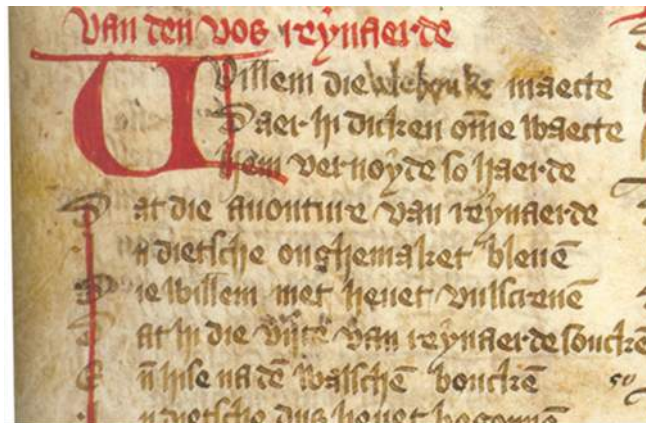 van den vos reynaerde
Willem die vele bouke maecte
Daer hi dicken om̄e waecte
hem vernoyde so haerde
Dat die auonture van reynaerde
n dietsche onghemaket bleuē
Die willem niet heuet vulscreuē
Dat hi die vijte van reynaerde soucken
Eñ hise na dē walschē boucken
n dietsche dus heuet begonnē